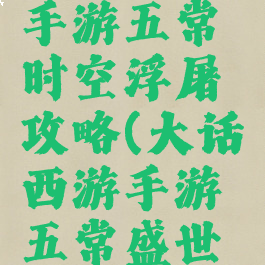 手游五常
时空浮屠
攻略(大话
西游手游
五常盛世